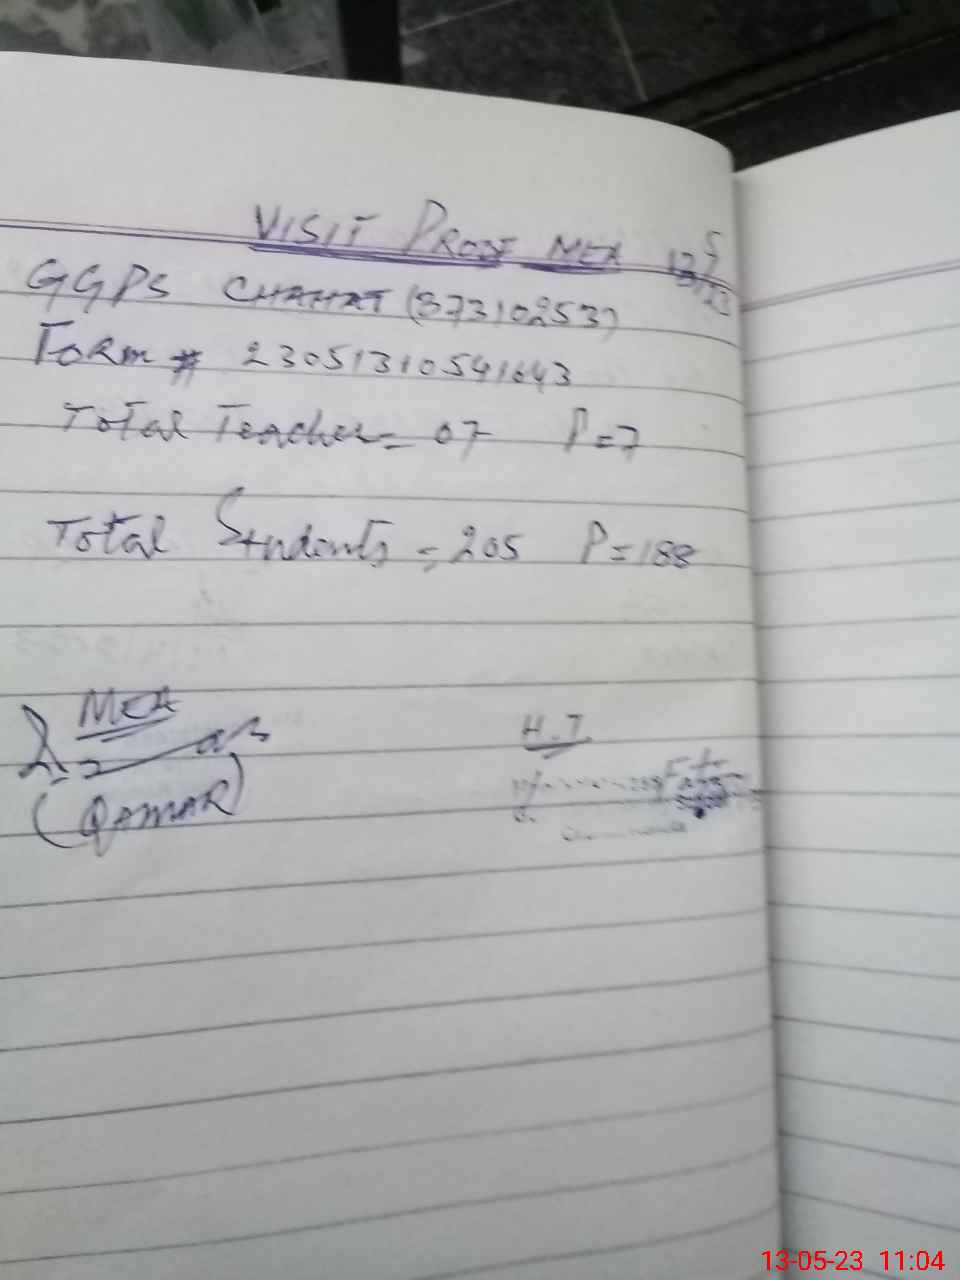 VISIT PROOF MEA 13/5/23
GGPS CHAHAT (37310253)
Form # 23051310541643
Total Teacher = 07 P=7
Total Students = 205 P=188
MEA
(QAMAR)
H.T.
13-05-23 11:04